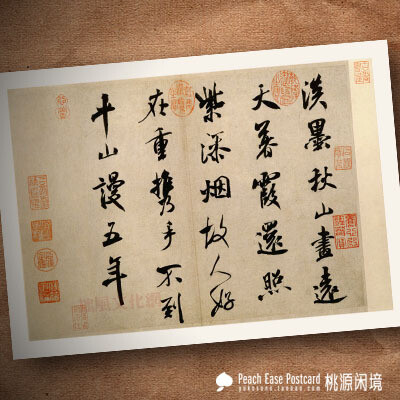 淡墨秋山畫遠
天暮霞還照
紫添烟故人好
在重攜手不到
平山謾五年
Peach Ease Postcard 桃源闲境